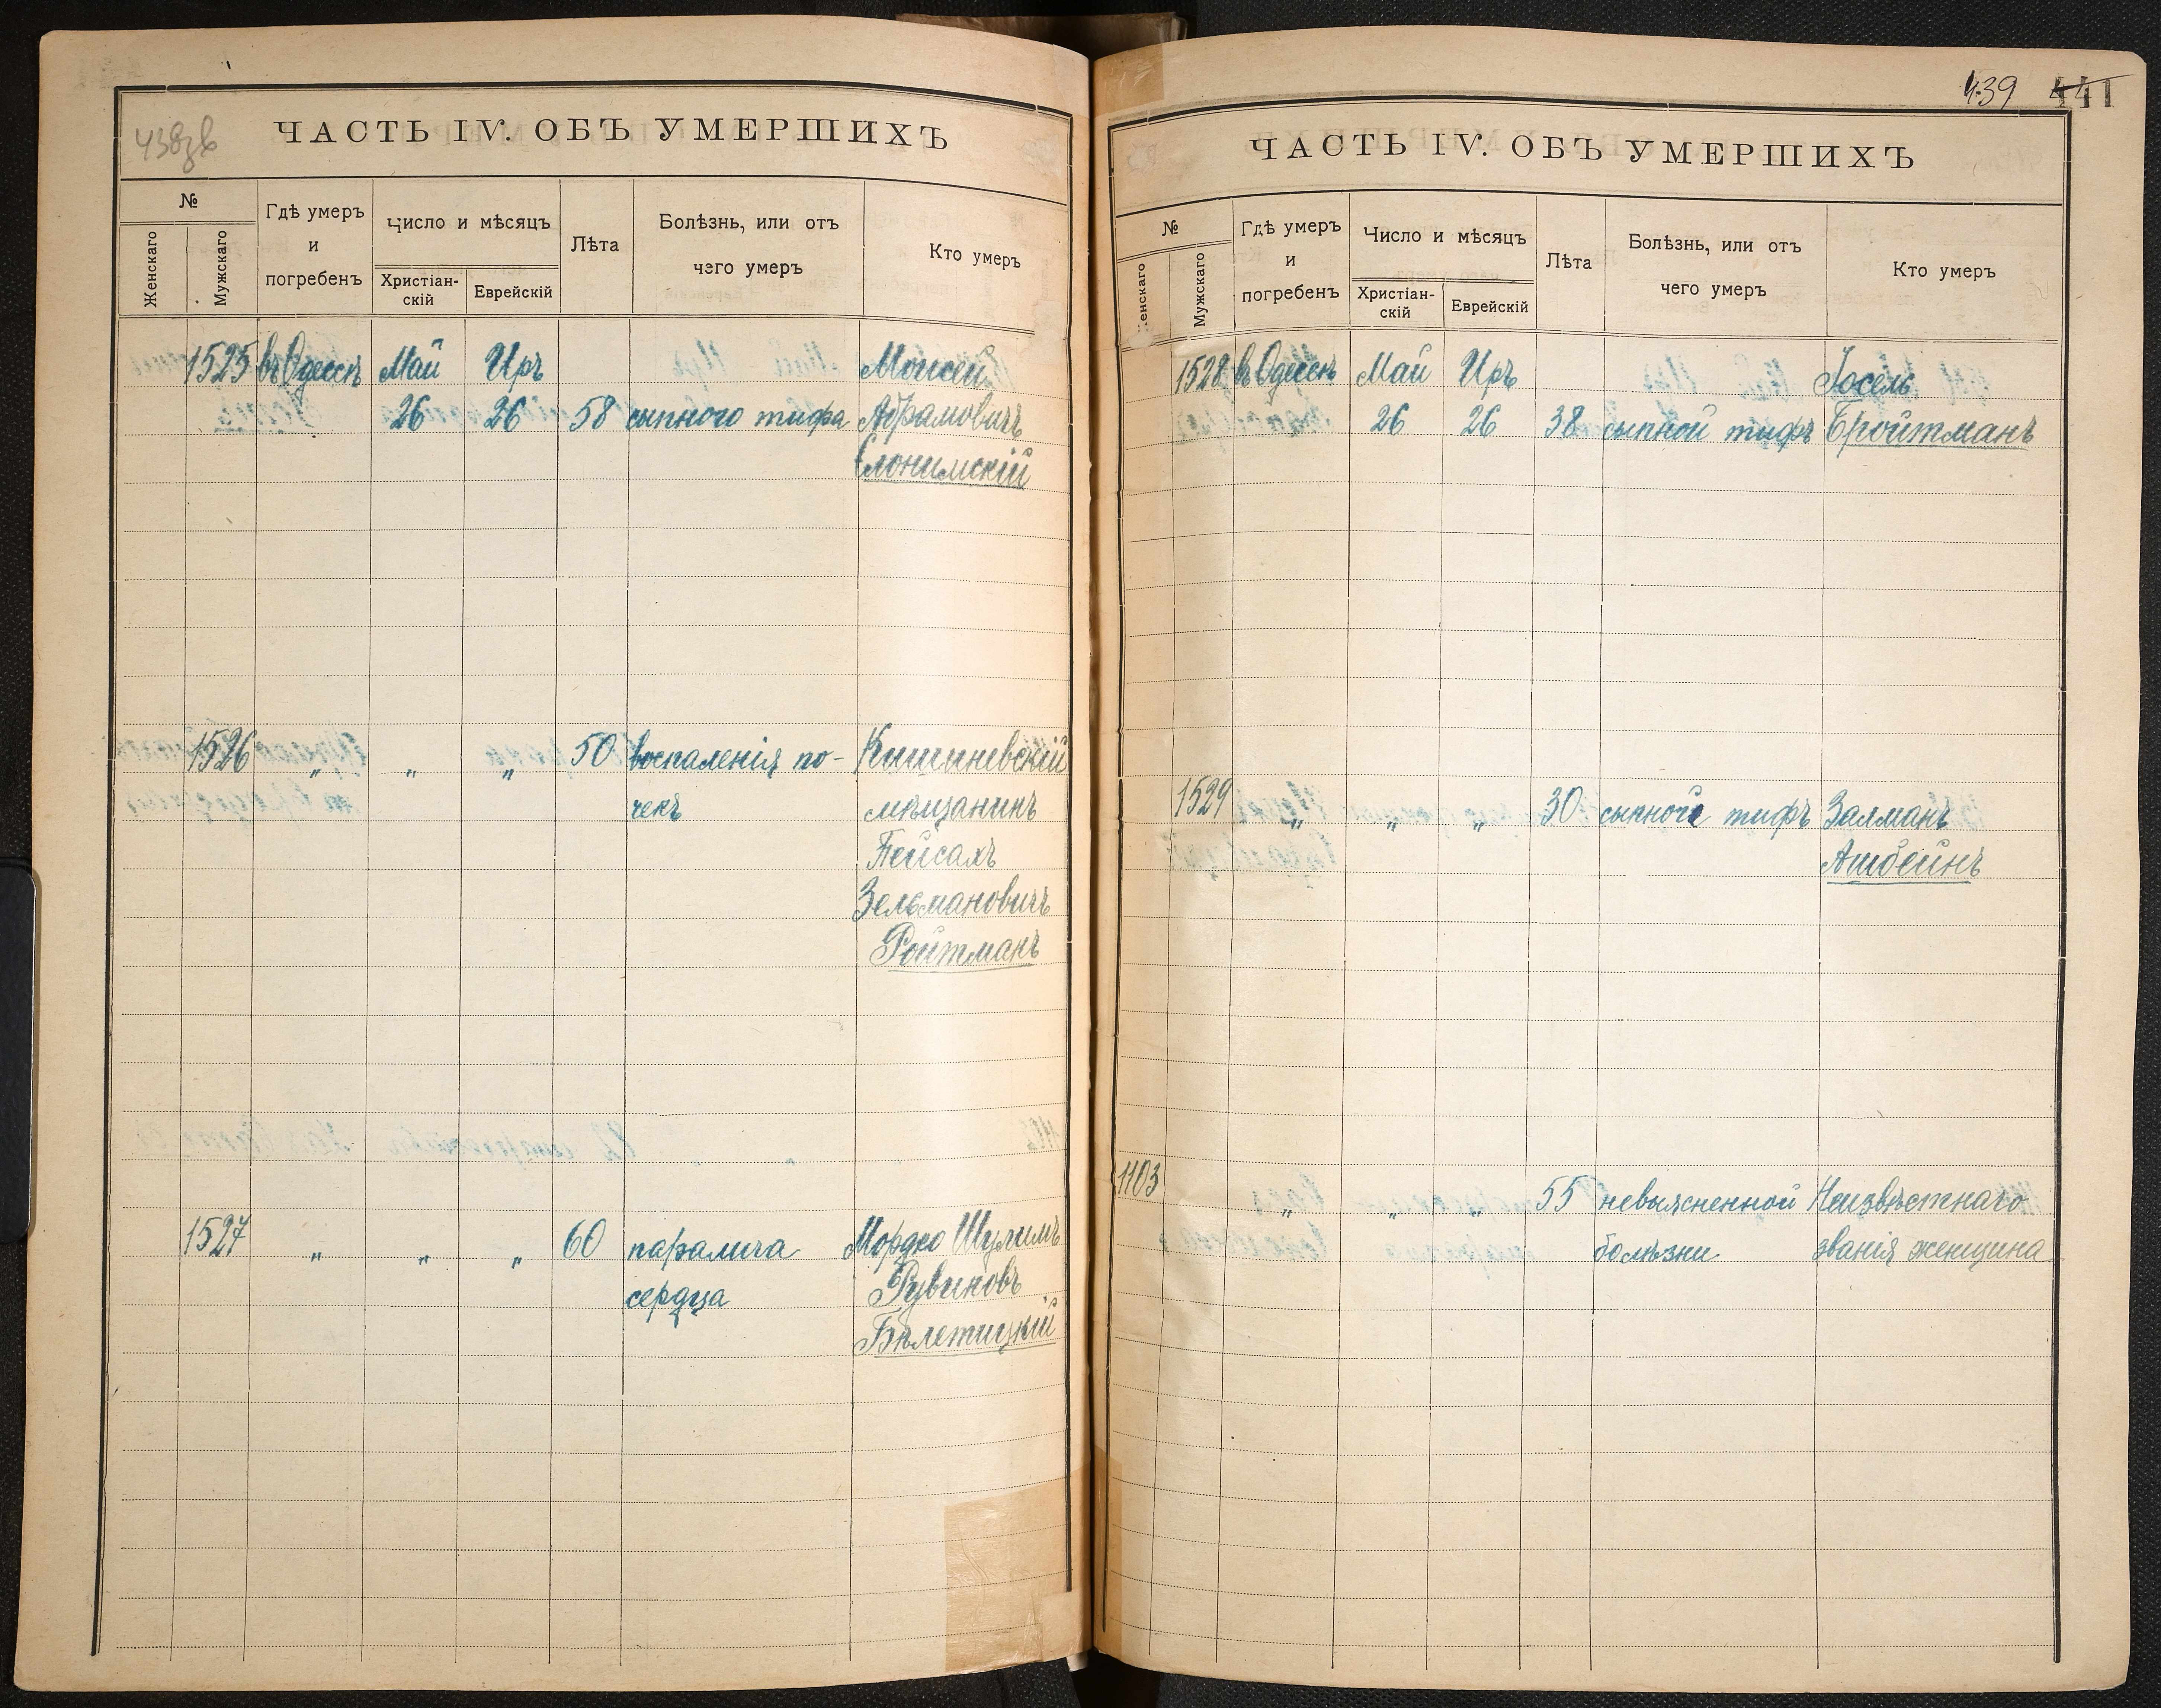 438 зв
ЧАСТЬ IV. ОБЪ УМЕРШИХЪ
№
Женскаго
Мужскаго
Гдѣ умеръ
и
погребенъ
Число и мѣсяцъ
Христіан-
скій
Еврейскій
Лѣта
Болѣзнь, или отъ
чего умеръ
Кто умеръ
1525 въ Одессѣ Май Иръ Моисей
26 26 58 сыпного тифа Абрамовичъ
Слонимскій
1526 " " " 50 воспаленія по- Кишиневскій
чекъ мѣщанинъ
Пейсахъ
Зельмановичъ
Ройтманъ
1527 " " " 60 паралича Мордко Шулимъ
сердца Рувиновъ
Бѣлетицкій
439 441
ЧАСТЬ IV. ОБЪ УМЕРШИХЪ
№
енскаго
Мужскаго
Гдѣ умеръ
и
погребенъ
Число и мѣсяцъ
Христіан-
скій
Еврейскій
Лѣта
Болѣзнь, или отъ
чего умеръ
Кто умеръ
1528 въ Одессѣ Май Иръ Іосель
26 26 38 сыпной тифъ Бройтманъ
1529 " " " 30 сыпной тифъ Залманъ
Ашбейнъ
1103 " " " 55 невыясненной Неизвѣстнаго
болѣзни званія женщина